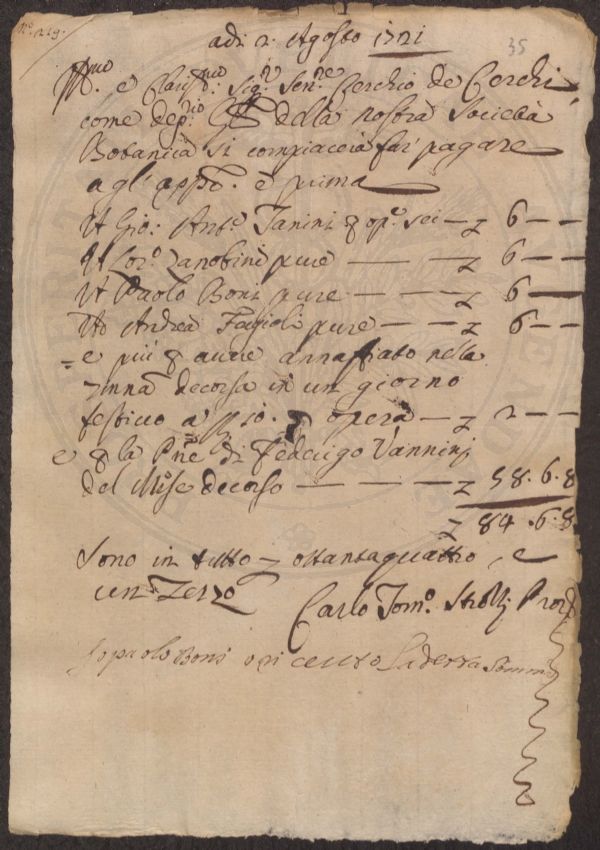 N.º 129.
35
adi 2. Agosto 1721
Ill.mo e Claris.mo Sig.r Sen.re Cerchio de Cerchi
come dep.rio della nostra Società
Botanica si compiaccia far pagare
agl'appo. e prima
A Gio: Ant.o Janini p op.e sei — 6 — —
A Lor.o Zanobini pure — — 6 — —
A Paolo Boni pure — — 6 — —
A Andrea Fagioli pure — — 6 — —
e più p avere annaffiato nella
7nna decorsa in un giorno
festivo a p opera — 2 — —
e p la Pne di Federigo Vannini
del Mese decorso — — — 58. 6. 8
84. 6. 8
Sono in tutto ottantaquattro, e
un Terzo
Carlo Tom.o Strozzi Prov.
Io paolo Boni o ricevuto la detta Somma